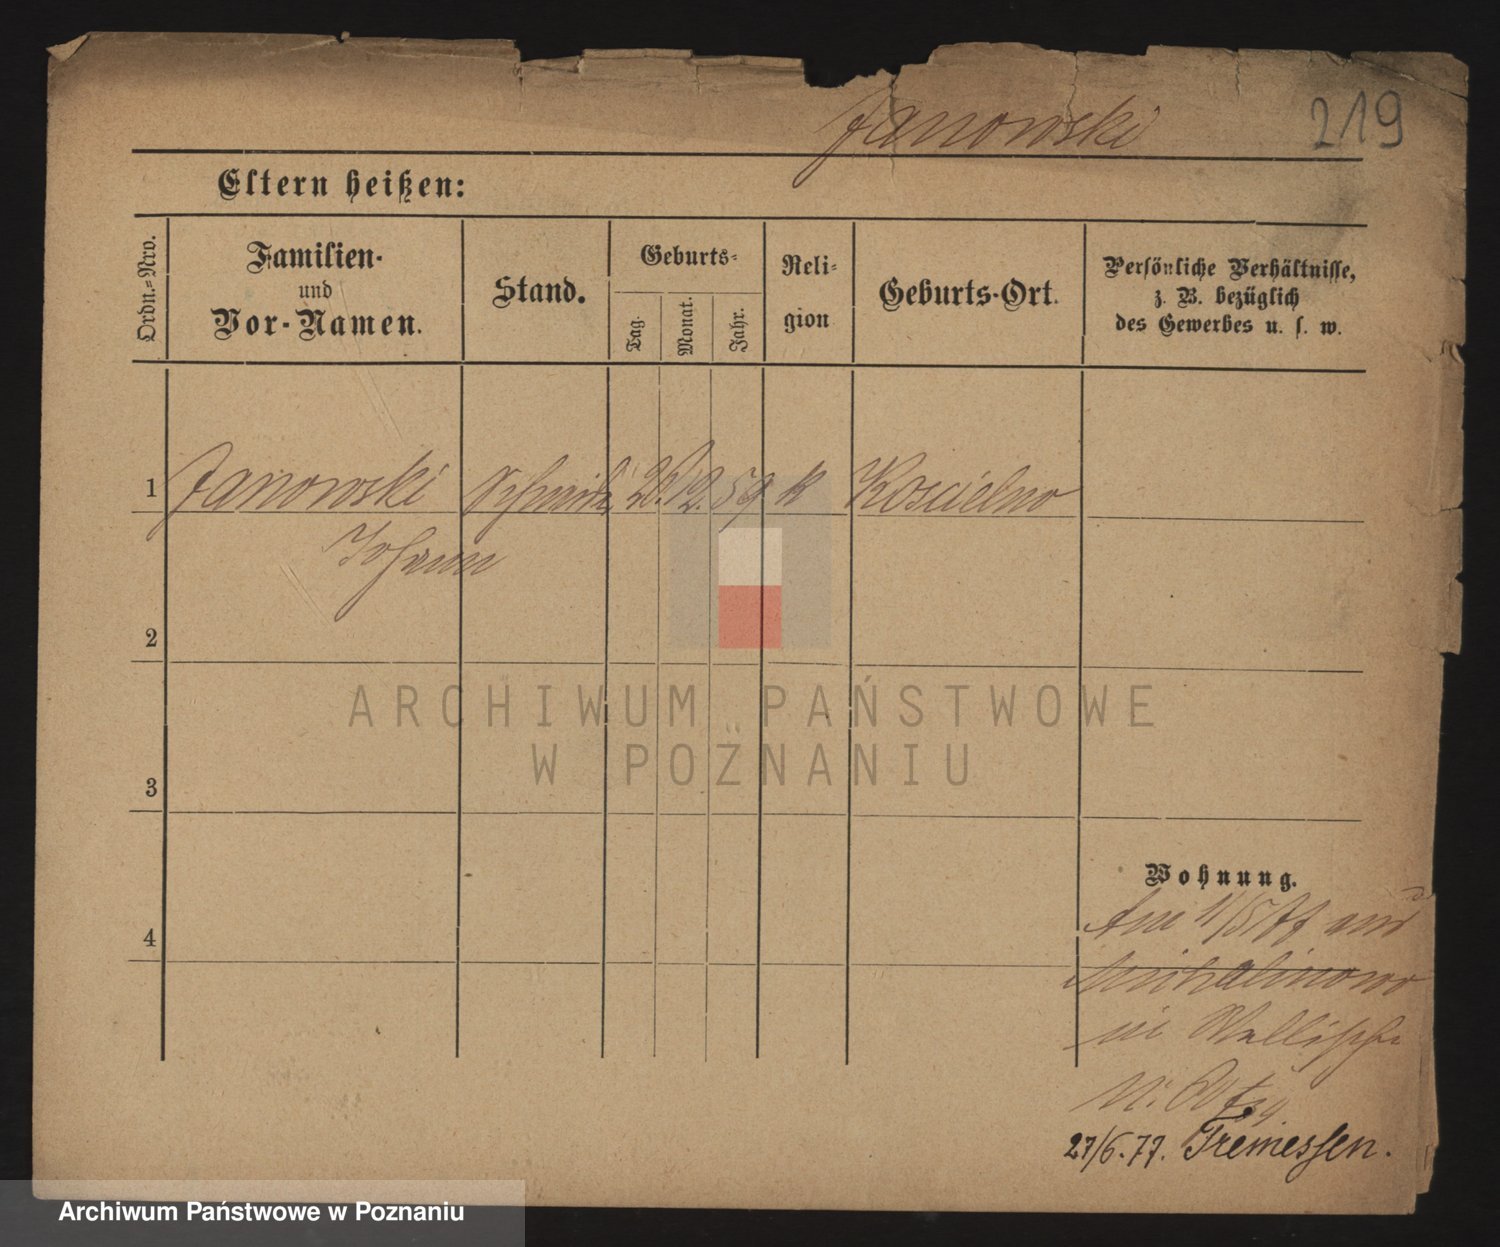 Janowski 219
Eltern heißen:
Ordn.-Nro.
Familien-
und
Vor-Namen.
Stand.
Geburts-
Tag.
Monat.
Jahr.
Reli-
gion
Geburts-Ort.
Persönliche Verhältnisse,
z. B. bezüglich
des Gewerbes u. s. w.
1 Janowski Schmidt 12. 59 k Koscielno
Johann
2
3
4
Wohnung.
Am 11/5 77 aus
Michalinowo
in Wallischei
27/6.77. Tremessen.
ARCHIWUM PAŃSTWOWE
W POZNANIU
Archiwum Państwowe w Poznaniu